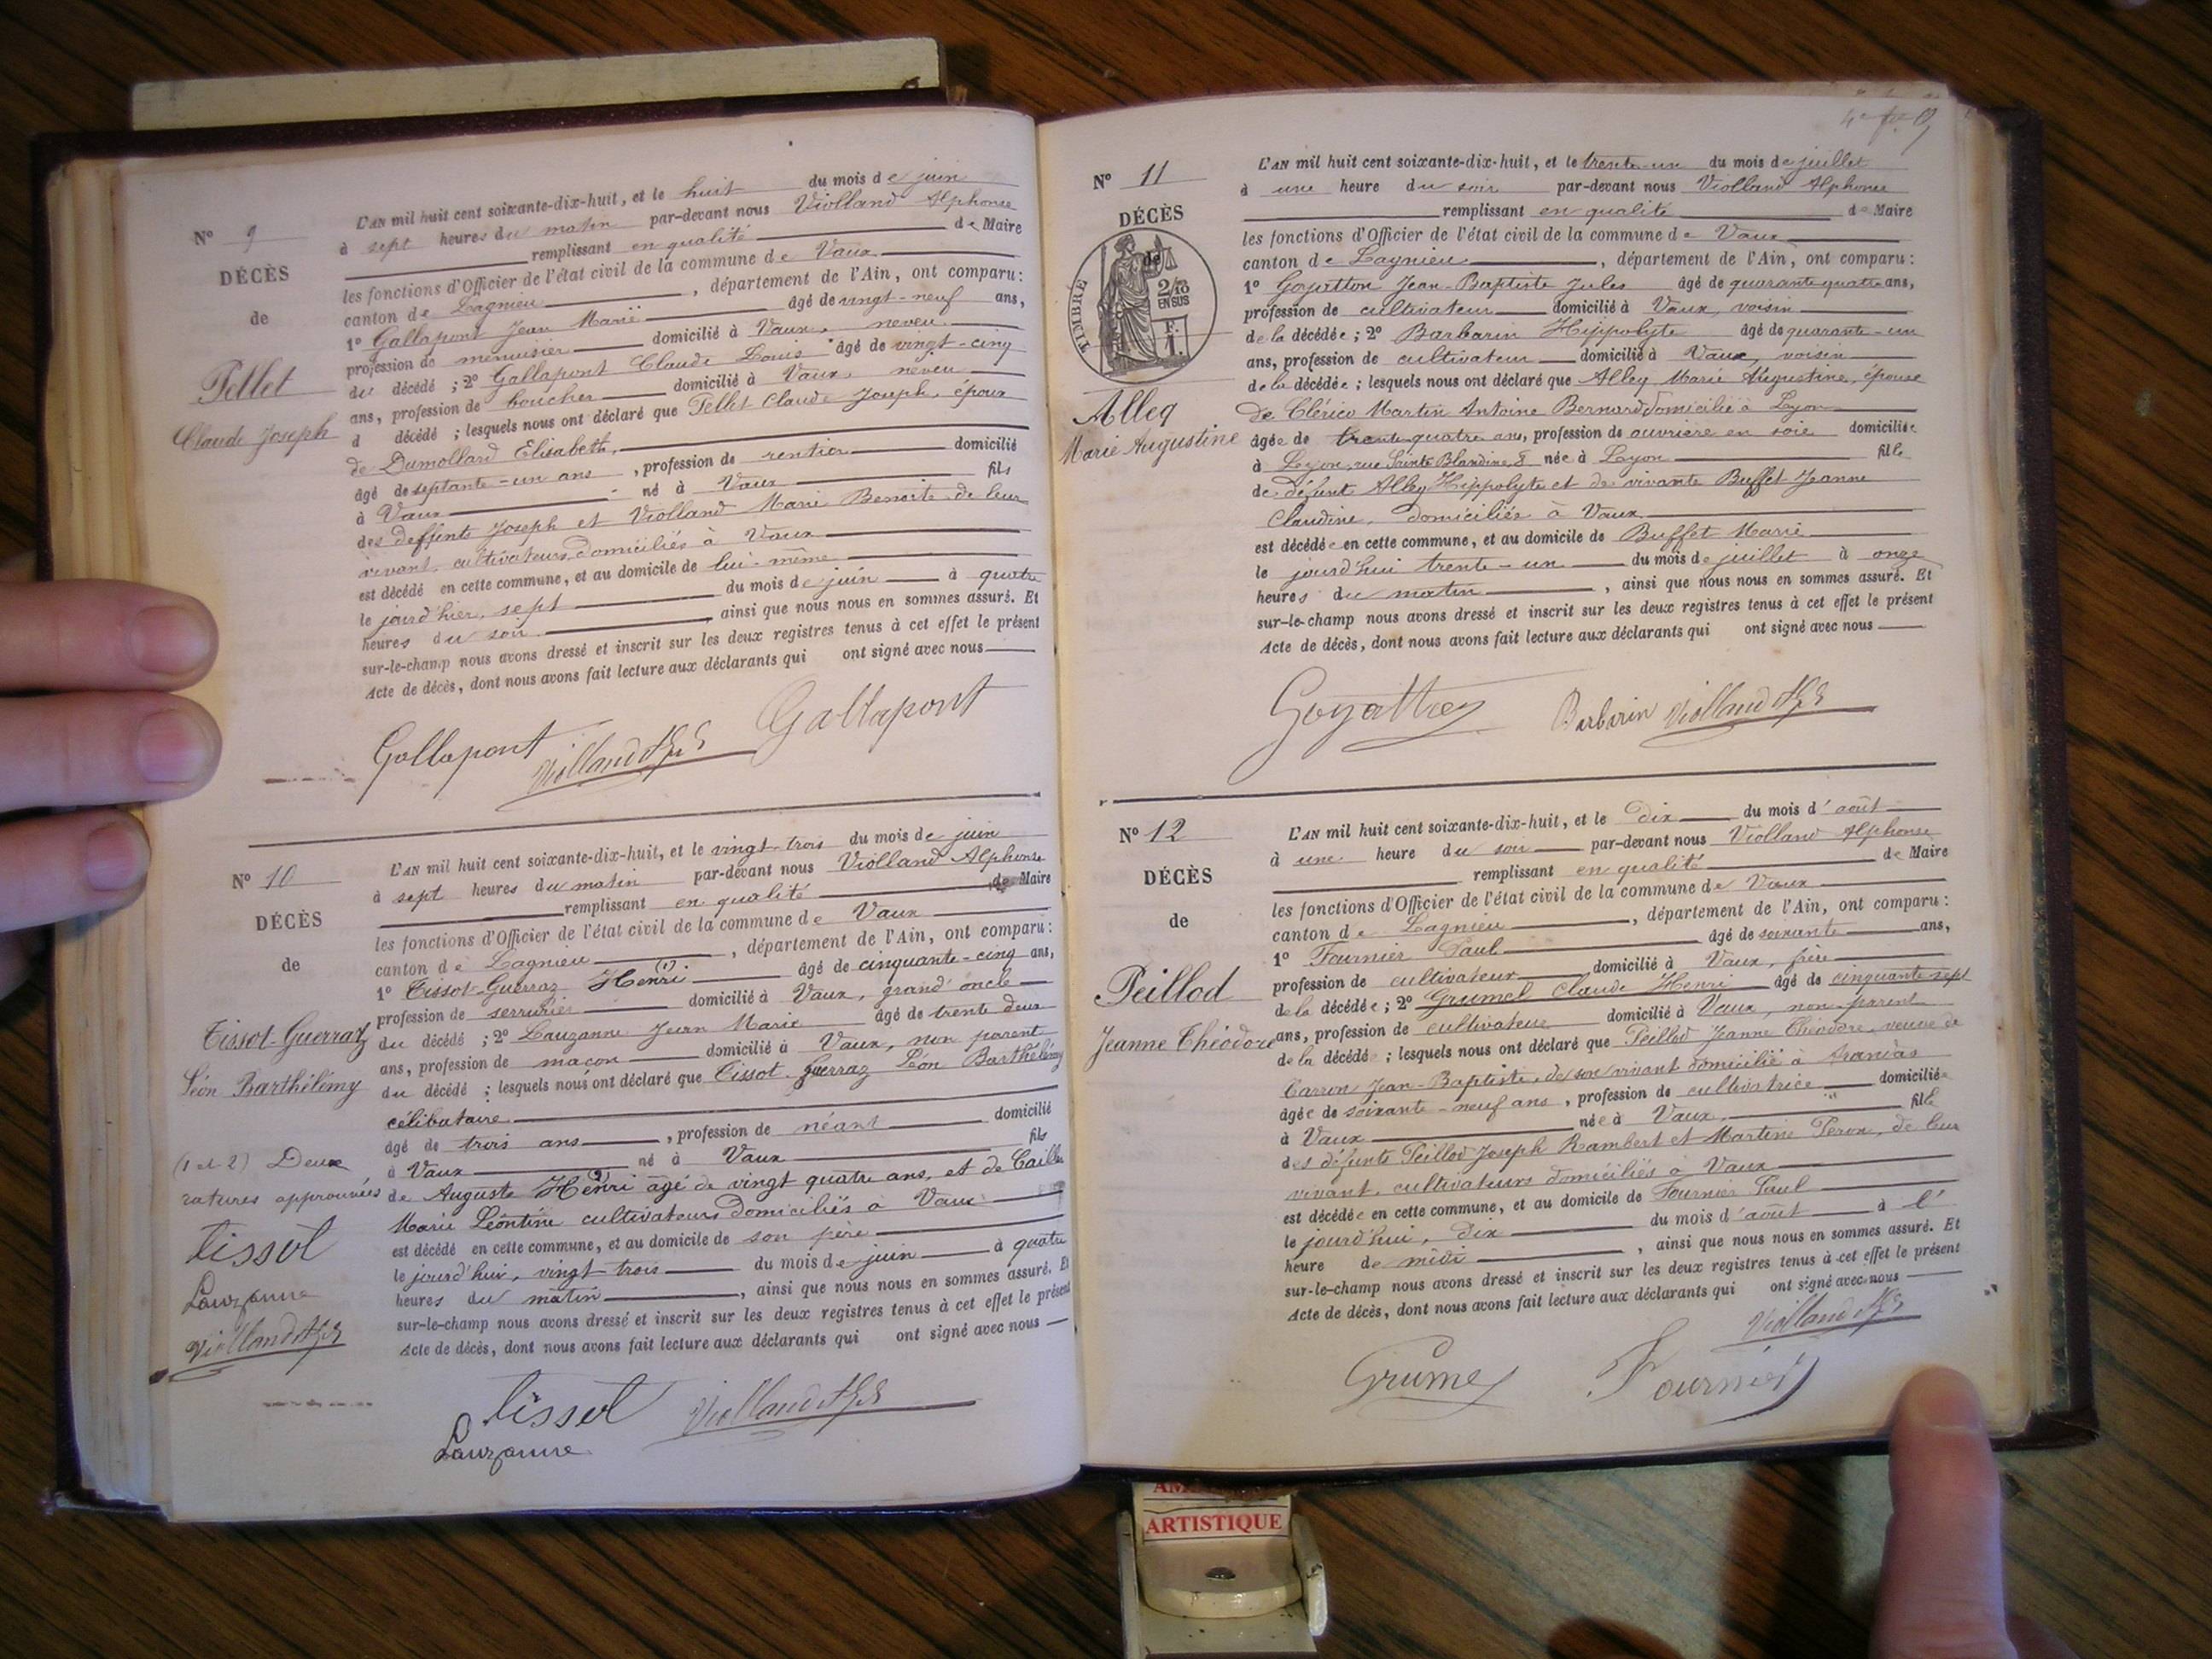 N° 9
DÉCÈS
de
Pellet
Claude Joseph
L'AN mil huit cent soixante-dix-huit, et le huit du mois de juin
à sept heures du matin par-devant nous Violland Alphonse
remplissant en qualité de Maire
les fonctions d'Officier de l'état civil de la commune de Vaux
canton de Lagnieu, département de l'Ain, ont comparu:
1° Gallapont Jean Marie âgé de vingt-neuf ans,
profession de menuisier domicilié à Vaux, neveu
du décédé; 2° Gallapont Claude Louis âgé de vingt-cinq
ans, profession de boucher domicilié à Vaux, neveu
d décédé; lesquels nous ont déclaré que Pellet Claude Joseph, époux
de Dumollard Elisabeth,
âgé de septante-un ans, profession de rentier domicilié
à Vaux né à Vaux fils
des deffunts Joseph et Violland Marie Benoite de leur
vivant, cultivateurs domiciliés à Vaux
est décédé en cette commune, et au domicile de lui-même
le jourd'hier, sept du mois de juin à quatre
heures du soir, ainsi que nous nous en sommes assuré. Et
sur-le-champ nous avons dressé et inscrit sur les deux registres tenus à cet effet le présent
Acte de décès, dont nous avons fait lecture aux déclarants qui ont signé avec nous
Gallapont Violland Gallapont
N° 10
DÉCÈS
de
Tissot-Guerraz
Léon Barthélémy
(1 et 2) Deux
ratures approuvées
Tissot
Lauzanne
Violland
L'AN mil huit cent soixante-dix-huit, et le vingt-trois du mois de juin
à sept heures du matin par-devant nous Violland Alphonse
remplissant en qualité de Maire
les fonctions d'Officier de l'état civil de la commune de Vaux
canton de Lagnieu, département de l'Ain, ont comparu:
1° Tissot-Guerraz Henri (1) âgé de cinquante-cinq ans,
profession de serrurier domicilié à Vaux, grand'oncle
du décédé; 2° Lauzanne Jean Marie âgé de trente deux
ans, profession de maçon domicilié à Vaux, non parent
du décédé; lesquels nous ont déclaré que Tissot-Guerraz Léon Barthélémy
célibataire
âgé de trois ans, profession de néant domicilié
à Vaux né à Vaux fils
de Auguste Henri (2) âgé de vingt quatre ans, et de Caille
Marie Léontine cultivateurs domiciliés à Vaux
est décédé en cette commune, et au domicile de son père
le jourd'hui, vingt-trois du mois de juin à quatre
heures du matin, ainsi que nous nous en sommes assuré. Et
sur-le-champ nous avons dressé et inscrit sur les deux registres tenus à cet effet le présent
Acte de décès, dont nous avons fait lecture aux déclarants qui ont signé avec nous
Tissot Violland
Lauzanne
N° 11
DÉCÈS
de
TIMBRE
2/10
EN SUS
F.
1.
Alleq
Marie Augustine
L'AN mil huit cent soixante-dix-huit, et le trente-un du mois de juillet
à une heure du soir par-devant nous Violland Alphonse
remplissant en qualité de Maire
les fonctions d'Officier de l'état civil de la commune de Vaux
canton de Lagnieu, département de l'Ain, ont comparu:
1° Jean-Baptiste Jules âgé de quarante quatre ans,
profession de cultivateur domicilié à Vaux, voisin
de la décédée; 2° Barbarin Hippolyte âgé de quarante-un
ans, profession de cultivateur domicilié à Vaux, voisin
de la décédée; lesquels nous ont déclaré que Alleq Marie Augustine, épouse
de Clérico Martin Antoine Bernard domicilié à Lyon
âgée de trente-quatre ans, profession de ouvrière en soie domiciliée
à Lyon, rue Sainte Blandine, 8 née à Lyon fille
de défunt Alleq Hippolyte et de vivante Buffet Jeanne
Claudine, domiciliés à Vaux
est décédée en cette commune, et au domicile de Buffet Marie
le jourd'hui trente-un du mois de juillet à onze
heures du matin, ainsi que nous nous en sommes assuré. Et
sur-le-champ nous avons dressé et inscrit sur les deux registres tenus à cet effet le présent
Acte de décès, dont nous avons fait lecture aux déclarants qui ont signé avec nous
Barbarin Violland
N° 12
DÉCÈS
de
Peillod
Jeanne Théodore
L'AN mil huit cent soixante-dix-huit, et le dix du mois d'août
à une heure du soir par-devant nous Violland Alphonse
remplissant en qualité de Maire
les fonctions d'Officier de l'état civil de la commune de Vaux
canton de Lagnieu, département de l'Ain, ont comparu:
1° Fournier Paul âgé de soixante ans,
profession de cultivateur domicilié à Vaux, frère
de la décédée; 2° Grumel Claude Henri âgé de cinquante sept
ans, profession de cultivateur domicilié à Vaux, non parent
de la décédée; lesquels nous ont déclaré que Peillod Jeanne Théodore, veuve de
Carron Jean-Baptiste, de son vivant domicilié à Arandas
âgée de soixante-neuf ans, profession de cultivatrice domiciliée
à Vaux née à Vaux fille
des défunts Peillod Joseph Rambert et Martine Peron, de leur
vivant, cultivateurs domiciliés à Vaux
est décédée en cette commune, et au domicile de Fournier Paul
le jourd'hui, dix du mois d'août à l'
heure de midi, ainsi que nous nous en sommes assuré. Et
sur-le-champ nous avons dressé et inscrit sur les deux registres tenus à cet effet le présent
Acte de décès, dont nous avons fait lecture aux déclarants qui ont signé avec nous
Violland
Grumel Fournier
ARTISTIQUE